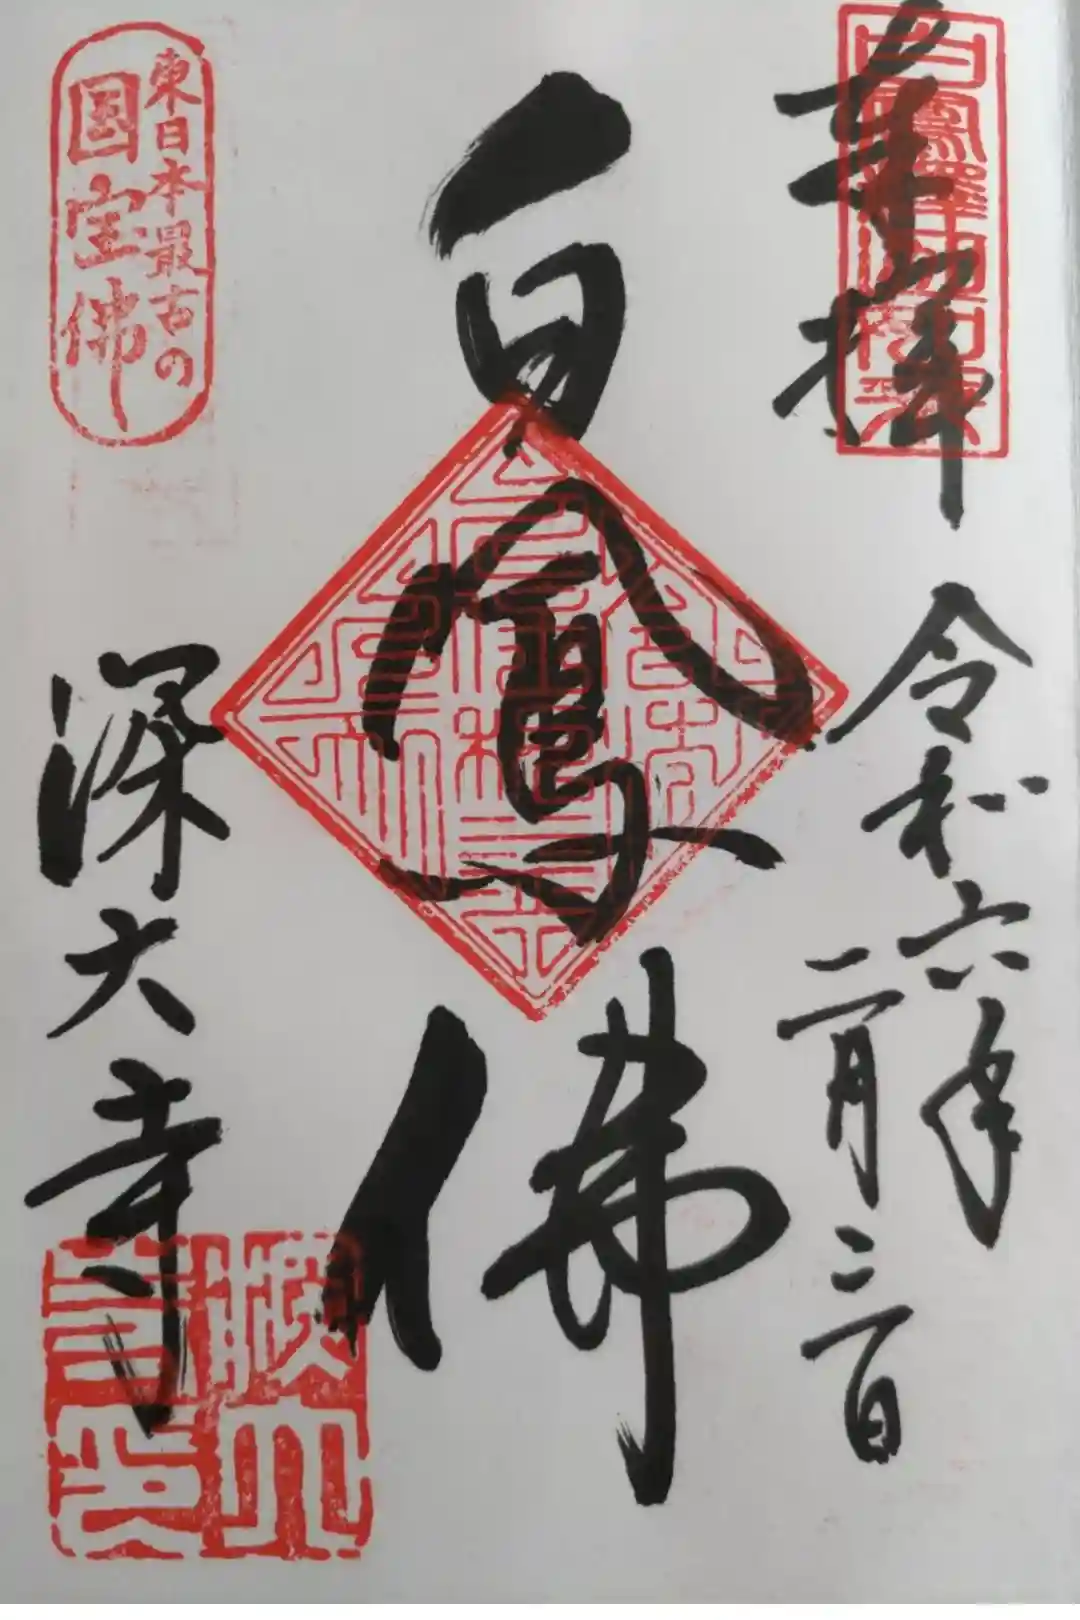 奉拝
令和六年
二月三日
白鳳佛
東日本最古の
国宝佛
深大寺
深大
寺印